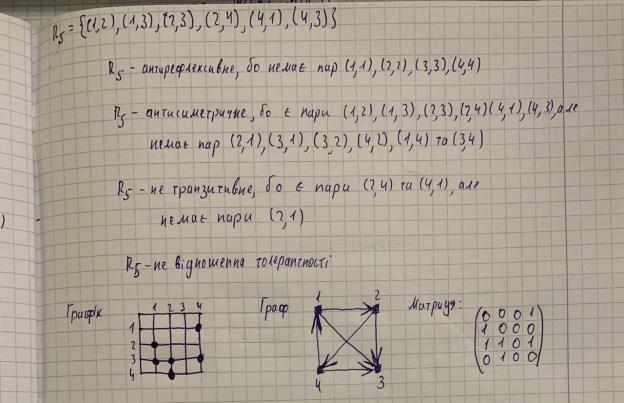 R₅ = {(1,2), (1,3), (2,3), (2,4), (4,1), (4,3)}
R₅ - антирефлексивне, бо немає пар (1,1), (2,2), (3,3), (4,4)
R₅ - антисиметричне, бо є пари (1,2), (1,3), (2,3), (2,4) (4,1), (4,3), але
немає пар (2,1), (3,1), (3,2), (4,2), (1,4) та (3,4)
R₅ - не транзитивне, бо є пари (2,4) та (4,1), але
немає пари (2,1)
)
R₅ - не відношення толерантності
Графік
1 2 3 4
1
2
3
4
Граф
1 2
4 3
Матриця:
0 0 0 1
1 0 0 0
1 1 0 1
0 1 0 0